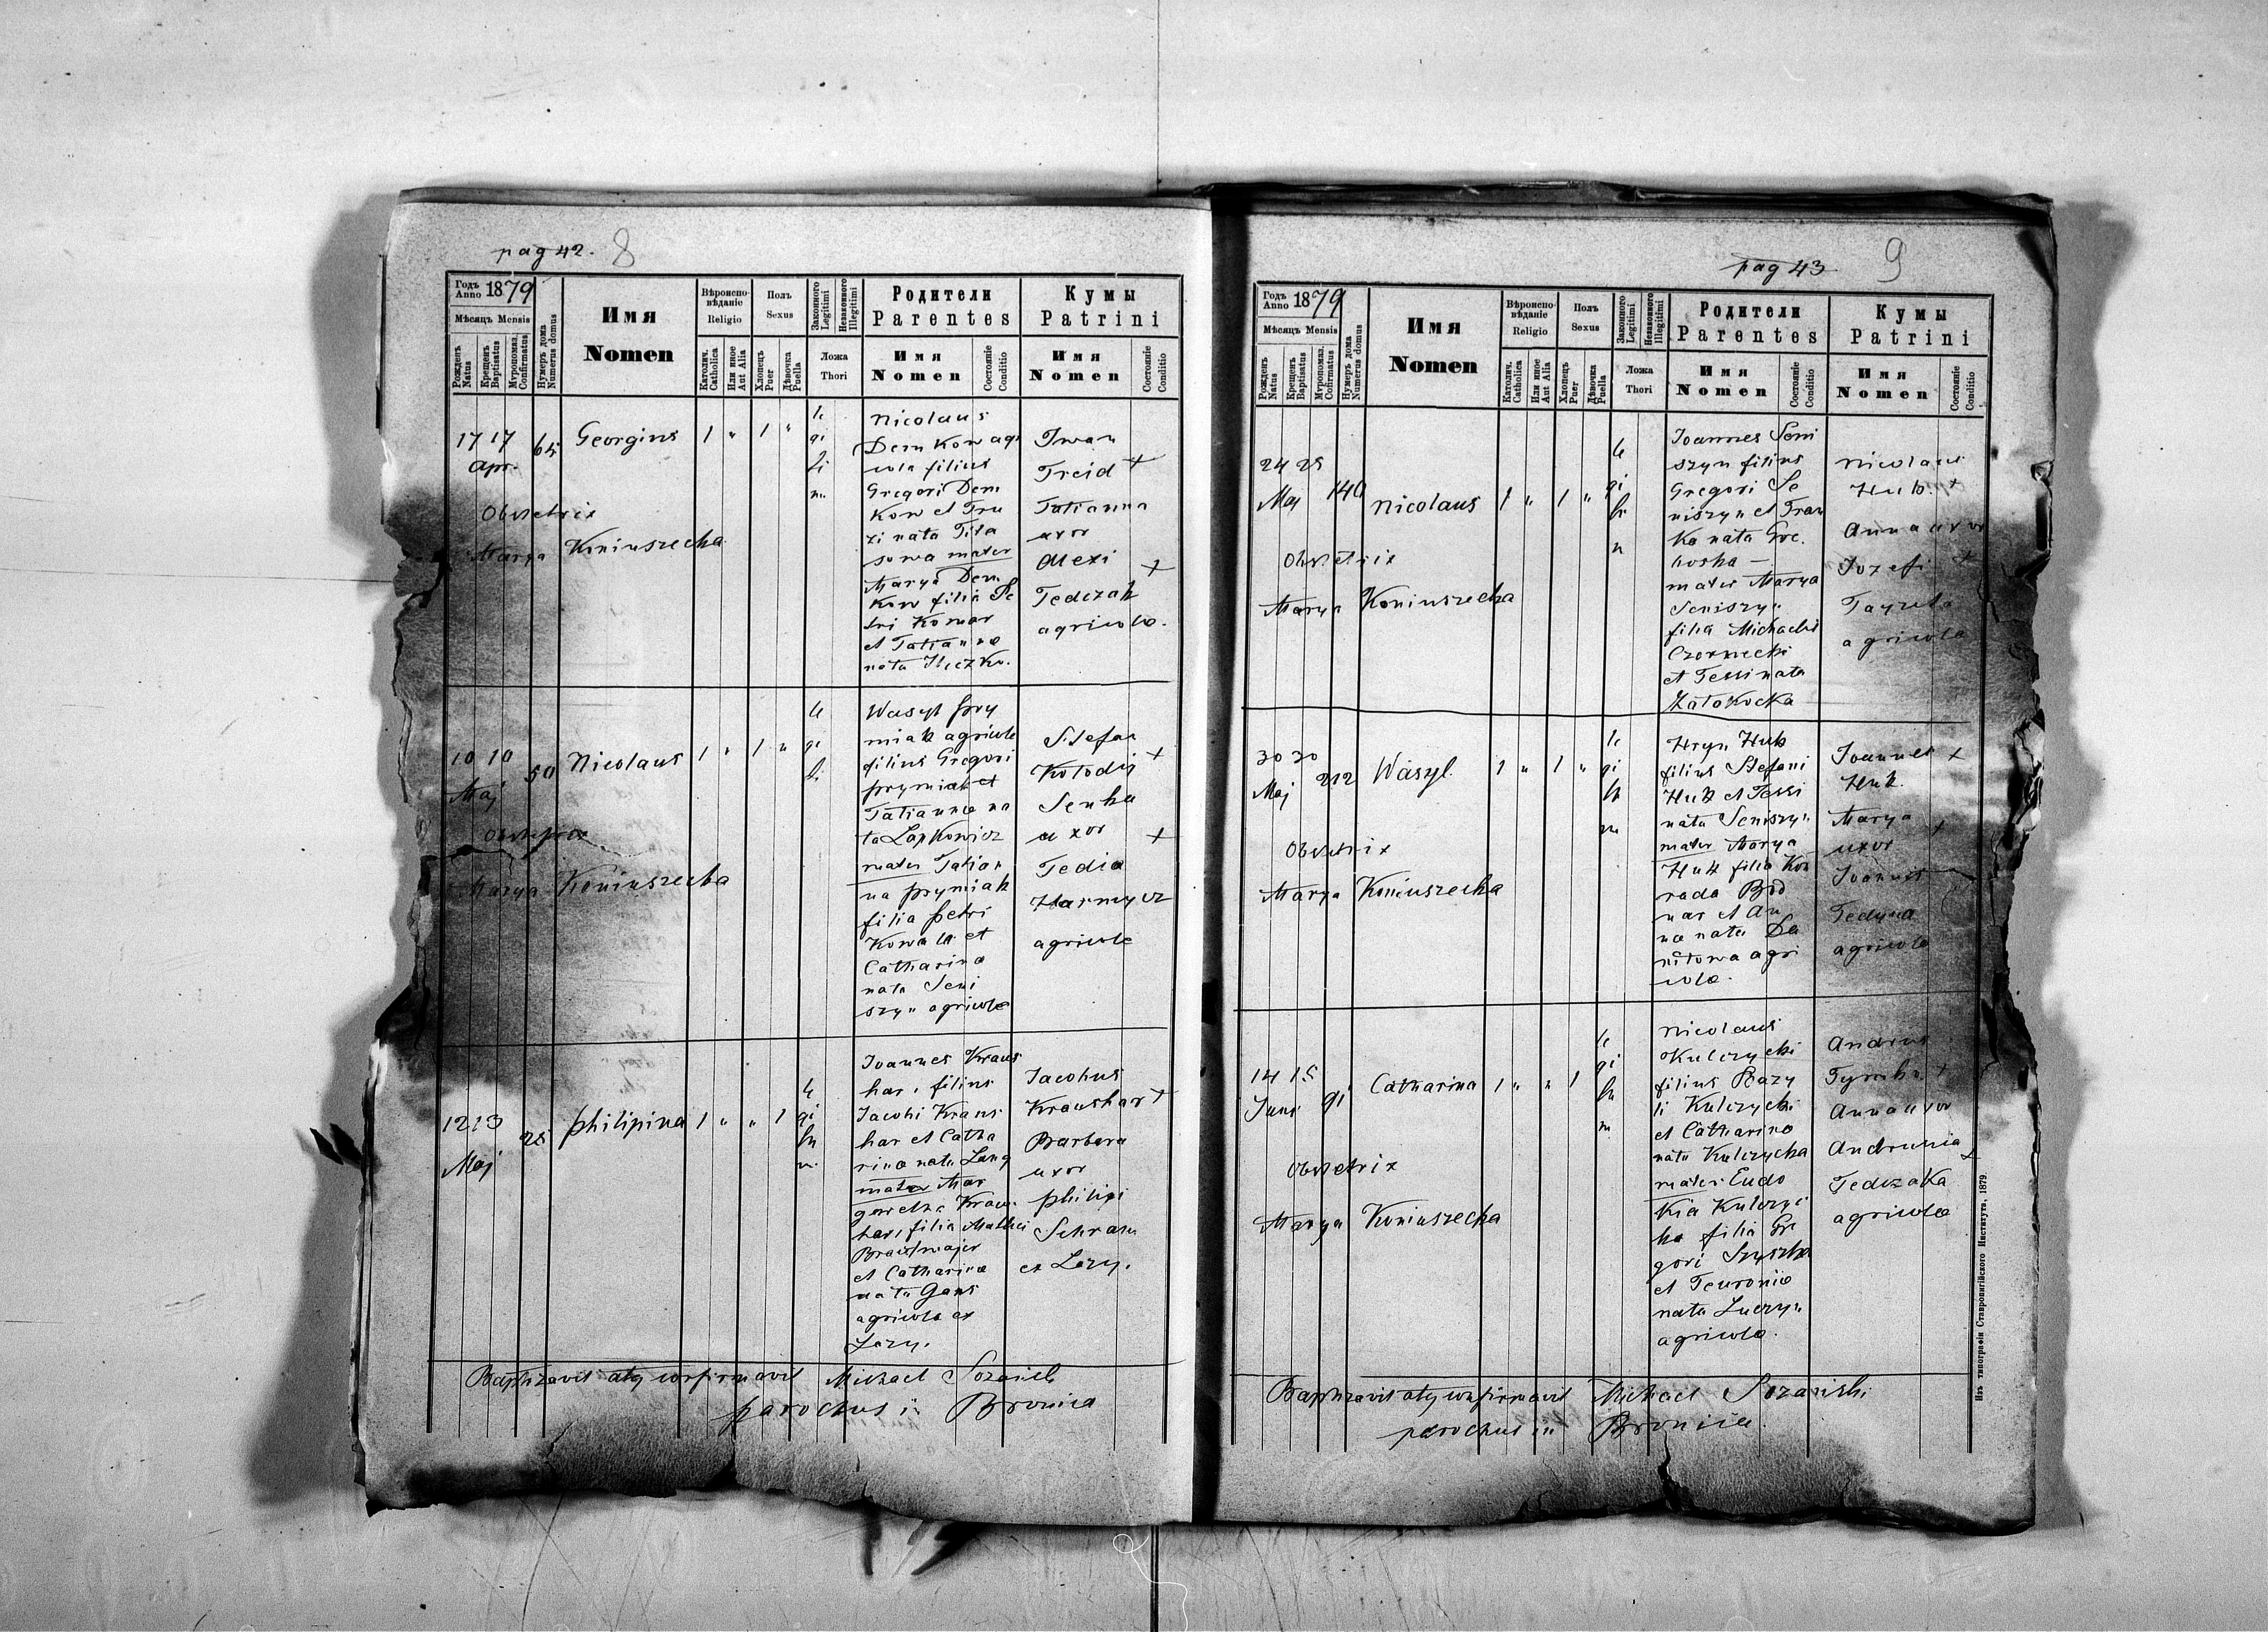 pag 42. 8
Годъ Anno 1879
Мѣсяцъ Mensis
Рожденъ Natus
Крещенъ Baptisatus
Муропомаз. Confirmatus
Нумеръ дома Numerus domus
Имя Nomen
Вѣроиспо-вѣданіе Religio
Католич. Catholica
Или иное Aut Alia
Полъ Sexus
Хлопецъ Puer
Дѣвочка Puella
Законного Legitimi
Незаконного Illegitimi
Ложа Thori
Родители Parentes
Имя Nomen
Состояніе Conditio
Кумы Patrini
Имя Nomen
Состояніе Conditio
17 17
Apr.
65
Georgius
1 " 1 "
le
gi
ti
m.
Nicolaus
Demkow agri
cola filius
Gregori Dem
kow et Tru
zi nata Tita
sowa mater
Marya Dem
kow filia Pe
tri Komar
et Tatianna
nata Ileczko.
Iwan
Treid +
Tatianna
uxor
Alexi +
Fedczak
agricola.
Obstetrix
Marya Koniuszecka
10 10
Maj
50
Nicolaus
1 " 1 "
le
gi
ti
Wasyl Pry
miak agricola
filius Gregori
Prymiak et
Tatianna na
ta Lapkowicz
mater Tatian
na Prymiak
filia Petri
Kowala et
Catharina
nata Seni
szyn agricola
Stefan
Kolodij +
Senka
uxor +
Fedia
Harmycz
agricola
Obstetrix
Marya Koniuszecka
12 13
Maj
25
Philipina
1 " " 1
le
gi
ti
m.
Joannes Kraus
har, filius
Jacobi Kraus
har et Catha
rina nata Lang
mater Mar
garetha Kraus
har, filia Mathei
et Catharina
nata Gans
agricola ex
Lozy.
Jacobus
Kraushar +
Barbara
uxor
Philipi
Schram
ex Lozy.
Baptizavit atq confirmavit Michael Sozański
parochus in Bronica
pag 43 9
Годъ Anno 1879
Мѣсяцъ Mensis
Рожденъ Natus
Крещенъ Baptisatus
Муропомаз. Confirmatus
Нумеръ дома Numerus domus
Имя Nomen
Вѣроиспо-вѣданіе Religio
Католич. Catholica
Или иное Aut Alia
Полъ Sexus
Хлопецъ Puer
Дѣвочка Puella
Законного Legitimi
Незаконного Illegitimi
Ложа Thori
Родители Parentes
Имя Nomen
Состояніе Conditio
Кумы Patrini
Имя Nomen
Состояніе Conditio
24 25
Maj
140
Nicolaus
1 " 1 "
le
gi
ti
m
Joannes Seni
szyn filius
Gregori Se
niszyn et Fran
ka nata Gre
boska —
mater Marya
Seniszyn
filia Michaelis
Czornecki
et Tessi nata
Zatokocka
Nicolaus
Huk. +
Anna uxor
Jozefi +
agricola
Obstetrix
Marya Koniuszecka
30 30
Maj
212
Wasyl.
1 " 1 "
le
gi
ti
m
Hryn Huk
filius Stefani
Huk et Tessi
nata Seniszyn
mater Marya
Huk filia Kon
rada Bod
nar et An
na nata Da
nitowa agri
cola.
Joannes +
Huk.
Marya +
uxor
Joannis
Fedyna
agricola
Obstetrix
Marya Koniuszecka
14 15
Juni
91
Catharina
1 " " 1
le
gi
ti
m
Nicolaus
Kulczycki
filius Bazy
li Kulczycki
et Catharina
nata Kulczycka
mater Eudo
kia Kulczyc
ka filia Gre
gori Szyszka
et Feuronia
nata Luczyn
agricola.
Andrus
Tymka +
Anna uxor
Andrunia
Fedczaka
agricola
Obstetrix
Marya Koniuszecka
Baptizavit atq confirmavit Michael Sozański
parochus in Bronica.
Изъ типографіи Ставропигійского Института, 1879